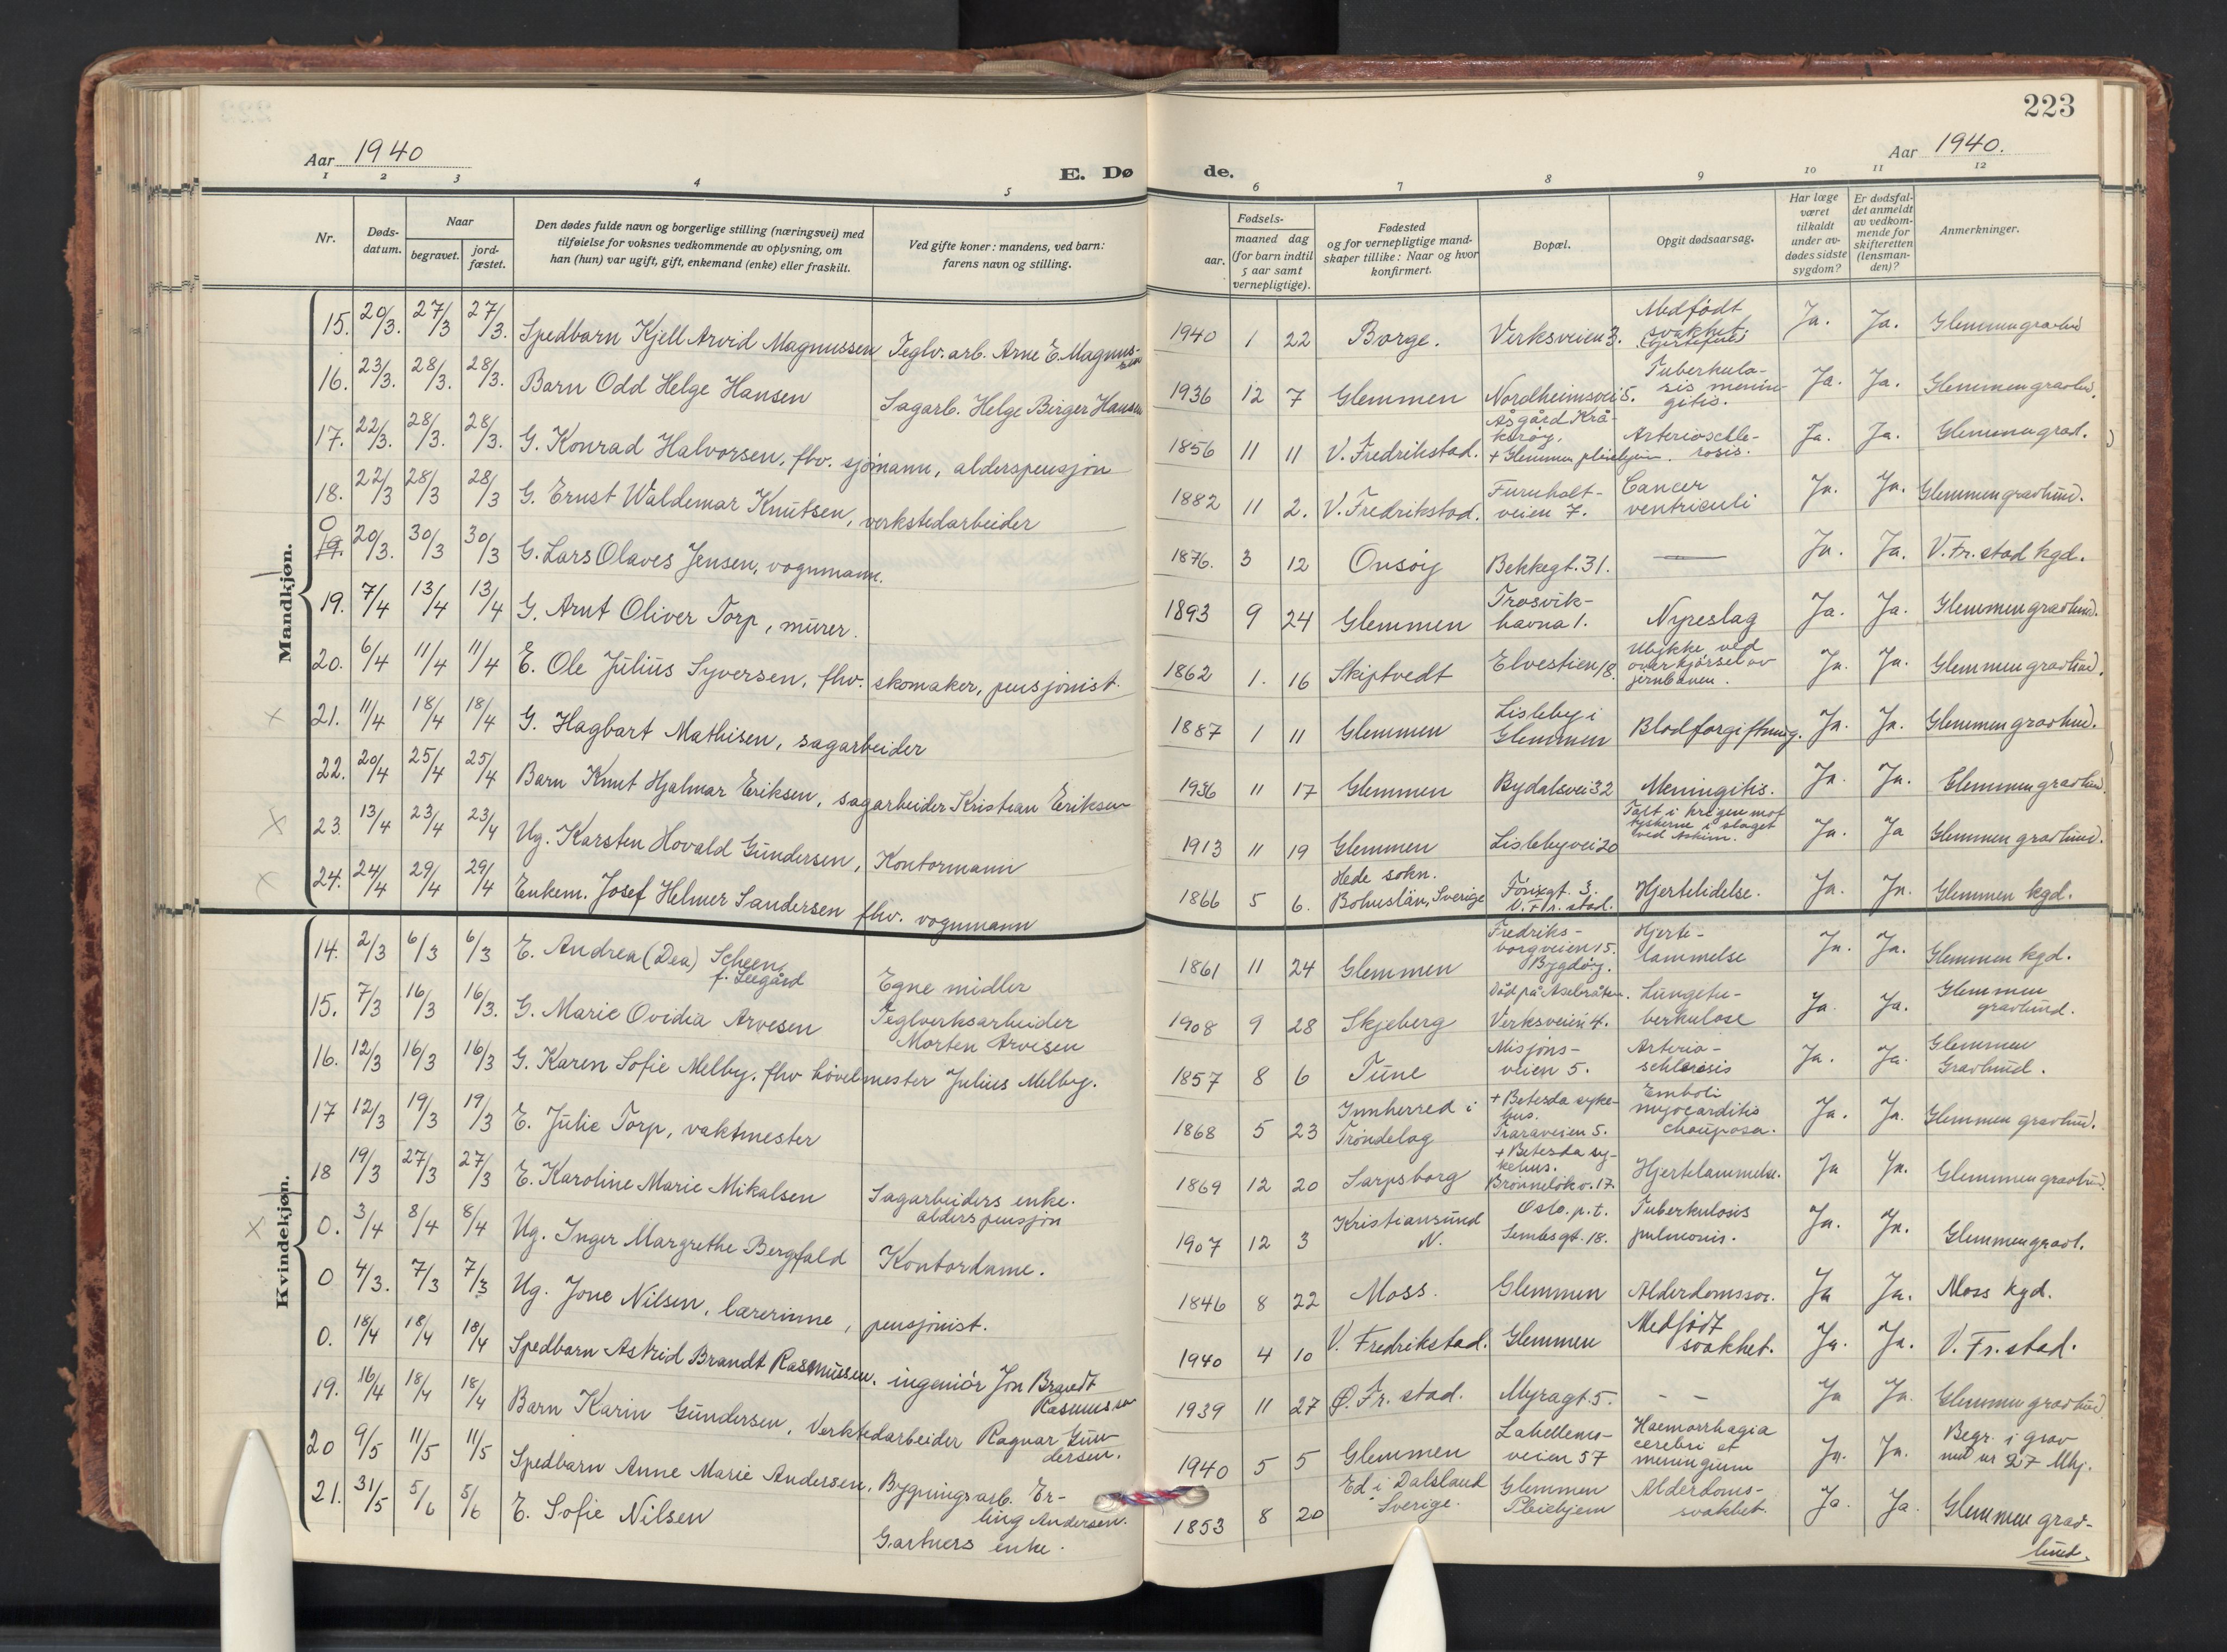 223
Aar 1940
Aar 1940.
E. Dø
de.
1 2 3 4 5 6 7 8 9 10 11 12
Nr.
Døds-datum.
Naar
begravet.
jord-fæstet.
Den dødes fulde navn og borgerlige stilling (næringsvei) med
tilføielse for voksnes vedkommende av oplysning, om
han (hun) var ugift, gift, enkemand (enke) eller fraskilt.
Ved gifte koner: mandens, ved barn:
farens navn og stilling.
Fødsels-
aar.
maaned dag
(for barn indtil
5 aar samt
vernepligtige).
Fødested
og for vernepligtige mand-
skaper tillike: Naar og hvor
konfirmert.
Bopæl.
Opgit dødsaarsag.
Har læge
været
tilkaldt
under av-
dødes sidste
sygdom?
Er dødsfal-
det anmeldt
av vedkom-
mende for
skifteretten
(lensman-
den)?
Anmerkninger.
Mandkjøn.
15. 20/3. 27/3 27/3. Spedbarn Kjell Arvid Magnussen Teglv. arb. Arne E. Magnussen 1940 1 22 Borge. Verksveien 3. Medfødt svakhet. Ja. Ja. Glemmen gravlund
16. 23/3. 28/3. 28/3. Barn Odd Helge Hansen Sagarb. Helge Birger Hansen 1936 12 7 Glemmen Nordheimsvei 5. Tuberkulosis meningitis. Ja. Ja. Glemmen gravlund.
17. 22/3. 28/3. 28/3. G. Konrad Halvorsen, fhv. sjømann, alderspensjon 1856 11 11 V. Fredrikstad. Åsgård Kråkerøy. + Glemmen pleiehjem. Arteriosclerosis. Ja. Ja. Glemmen gravl.
18. 22/3 28/3 28/3 G. Ernst Waldemar Knutsen, verkstedarbeider 1882 11 2. V. Fredrikstad. Furuholtveien 7. Cancer ventriculi Ja. Ja. Glemmen gravlund.
0 19. 20/3. 30/3 30/3 G. Lars Olaves Jensen, vognmann. 1876. 3 12 Onsøy Bekkegt. 31. — Ja. Ja. V. Fr. stad kgd.
19. 7/4 13/4 13/4 G. Arnt Oliver Torp, murer. 1893 9 24 Glemmen Trosvikhavna 1. Nyreslag Ja. Ja. Glemmen gravlund.
20. 6/4 11/4 11/4 E. Ole Julius Syversen, fhv. skomaker, pensjonist. 1862 1. 16 Skiptvedt Elvestien 18. Ulykke ved overkjørsel av jernbanen. Ja. Ja. Glemmen gravlund.
× 21. 11/4 18/4 18/4 G. Hagbart Mathisen, sagarbeider 1887 1 11 Glemmen Lisleby i Glemmen Blodforgiftning. Ja. Ja. Glemmen gravlund.
22. 20/4 25/4 25/4 Barn Knut Hjalmar Eriksen, sagarbeider Kristian Eriksen 1936 11 17 Glemmen Bydalsvei 32 Meningitis. Ja. Ja. Glemmen gravlund.
× 23. 13/4 23/4 23/4 Ug. Karsten Hovald Gundersen, Kontormann 1913 11 19 Glemmen Lislebyvei 20 Falt i krigen mot tyskerne i slaget ved Askim. Ja. Ja Glemmen gravlund.
× 24. 24/4 29/4 29/4 Enkem. Josef Helmer Sandersen fhv. vognmann 1866 5 6. Hede sokn. Bohuslän, Sverige 3. V. Fr. stad. Hjertelidelse. Ja. Ja. Glemmen kgd.
Kvindekjøn.
14. 2/3 6/3 6/3 E. Andrea (Dea) Scheen, f. Leegård Egne midler 1861 11 24 Glemmen Fredriksborgveien 15. Bygdøy. Hjertelammelse Ja. Ja. Glemmen kgd.
15. 7/3 16/3 16/3. G. Marie Ovidia Arvesen Teglverksarbeider Morten Arvesen 1908 9 28 Skjeberg Død på Aselråten. Verksveien 4. Lungetuberkulose Ja. Ja. Glemmen gravlund.
16. 12/3 16/3 16/3 G. Karen Sofie Melby, fhv høvelmester Julius Melby. 1857 8 6 Tune Misjonsveien 5. Arteriosclerosis Ja. Ja. Glemmen Gravlund.
17 12/3 19/3 19/3 E. Julie Torp, vaktmester 1868 5 23 Innherred i Trøndelag + Betesda sykehus. Traraveien 5. Emboli myocarditis Ja. Ja. Glemmen gravlund.
18 19/3 27/3 27/3 E. Karoline Marie Mikalsen Sagarbeiders enke. alderspensjon 1869 12 20 Sarpsborg + Betesda sykehus. Brønneløkv. 17. Hjertelammelse. Ja Ja. Glemmen gravlund.
× 0. 3/4 8/4 8/4 Ug. Inger Margrethe Bergfald Kontordame. 1907 12 3 Kristiansund N. Oslo. p.t. Sembsgt. 18. Tuberkulosis pulmonis. Ja. Ja. Glemmen gravl.
0 4/3. 7/3 7/3 Ug. Jone Nilsen, lærerinne, pensjonist. 1846 8 22 Moss. Glemmen Alderdomssv. Ja Ja. Moss kgd.
0. 18/4 18/4 18/4 Spedbarn Astrid Brandt Rasmussen. ingeniør Jon Brandt Rasmussen 1940 4 10 V. Fredrikstad. Glemmen Medfødt svakhet. Ja. Ja. V. Fr. stad.
19. 16/4 18/4 18/4 Barn Karin Gundersen, Verkstedarbeider Ragnar Gundersen. 1939 11 27 Ø. Fr. stad. Myragt. 5. - - Ja Ja. Glemmen gravlund
20 9/5 11/5 11/5 Spedbarn Anne Marie Andersen, Bygningsarb. Erling Andersen. 1940 5 5 Glemmen Lahellemsveien 57 Haemorrhagia cerebri et meningium Ja. Ja. Begr. i grav med nr 27 Mkj.
21. 31/5 5/6 5/6 E. Sofie Nilsen Gartners enke. 1853 8 20 Ed i Dalsland Sverige. Glemmen Pleiehjem Alderdomssvakhet. Ja. Ja. Glemmen gravlund.